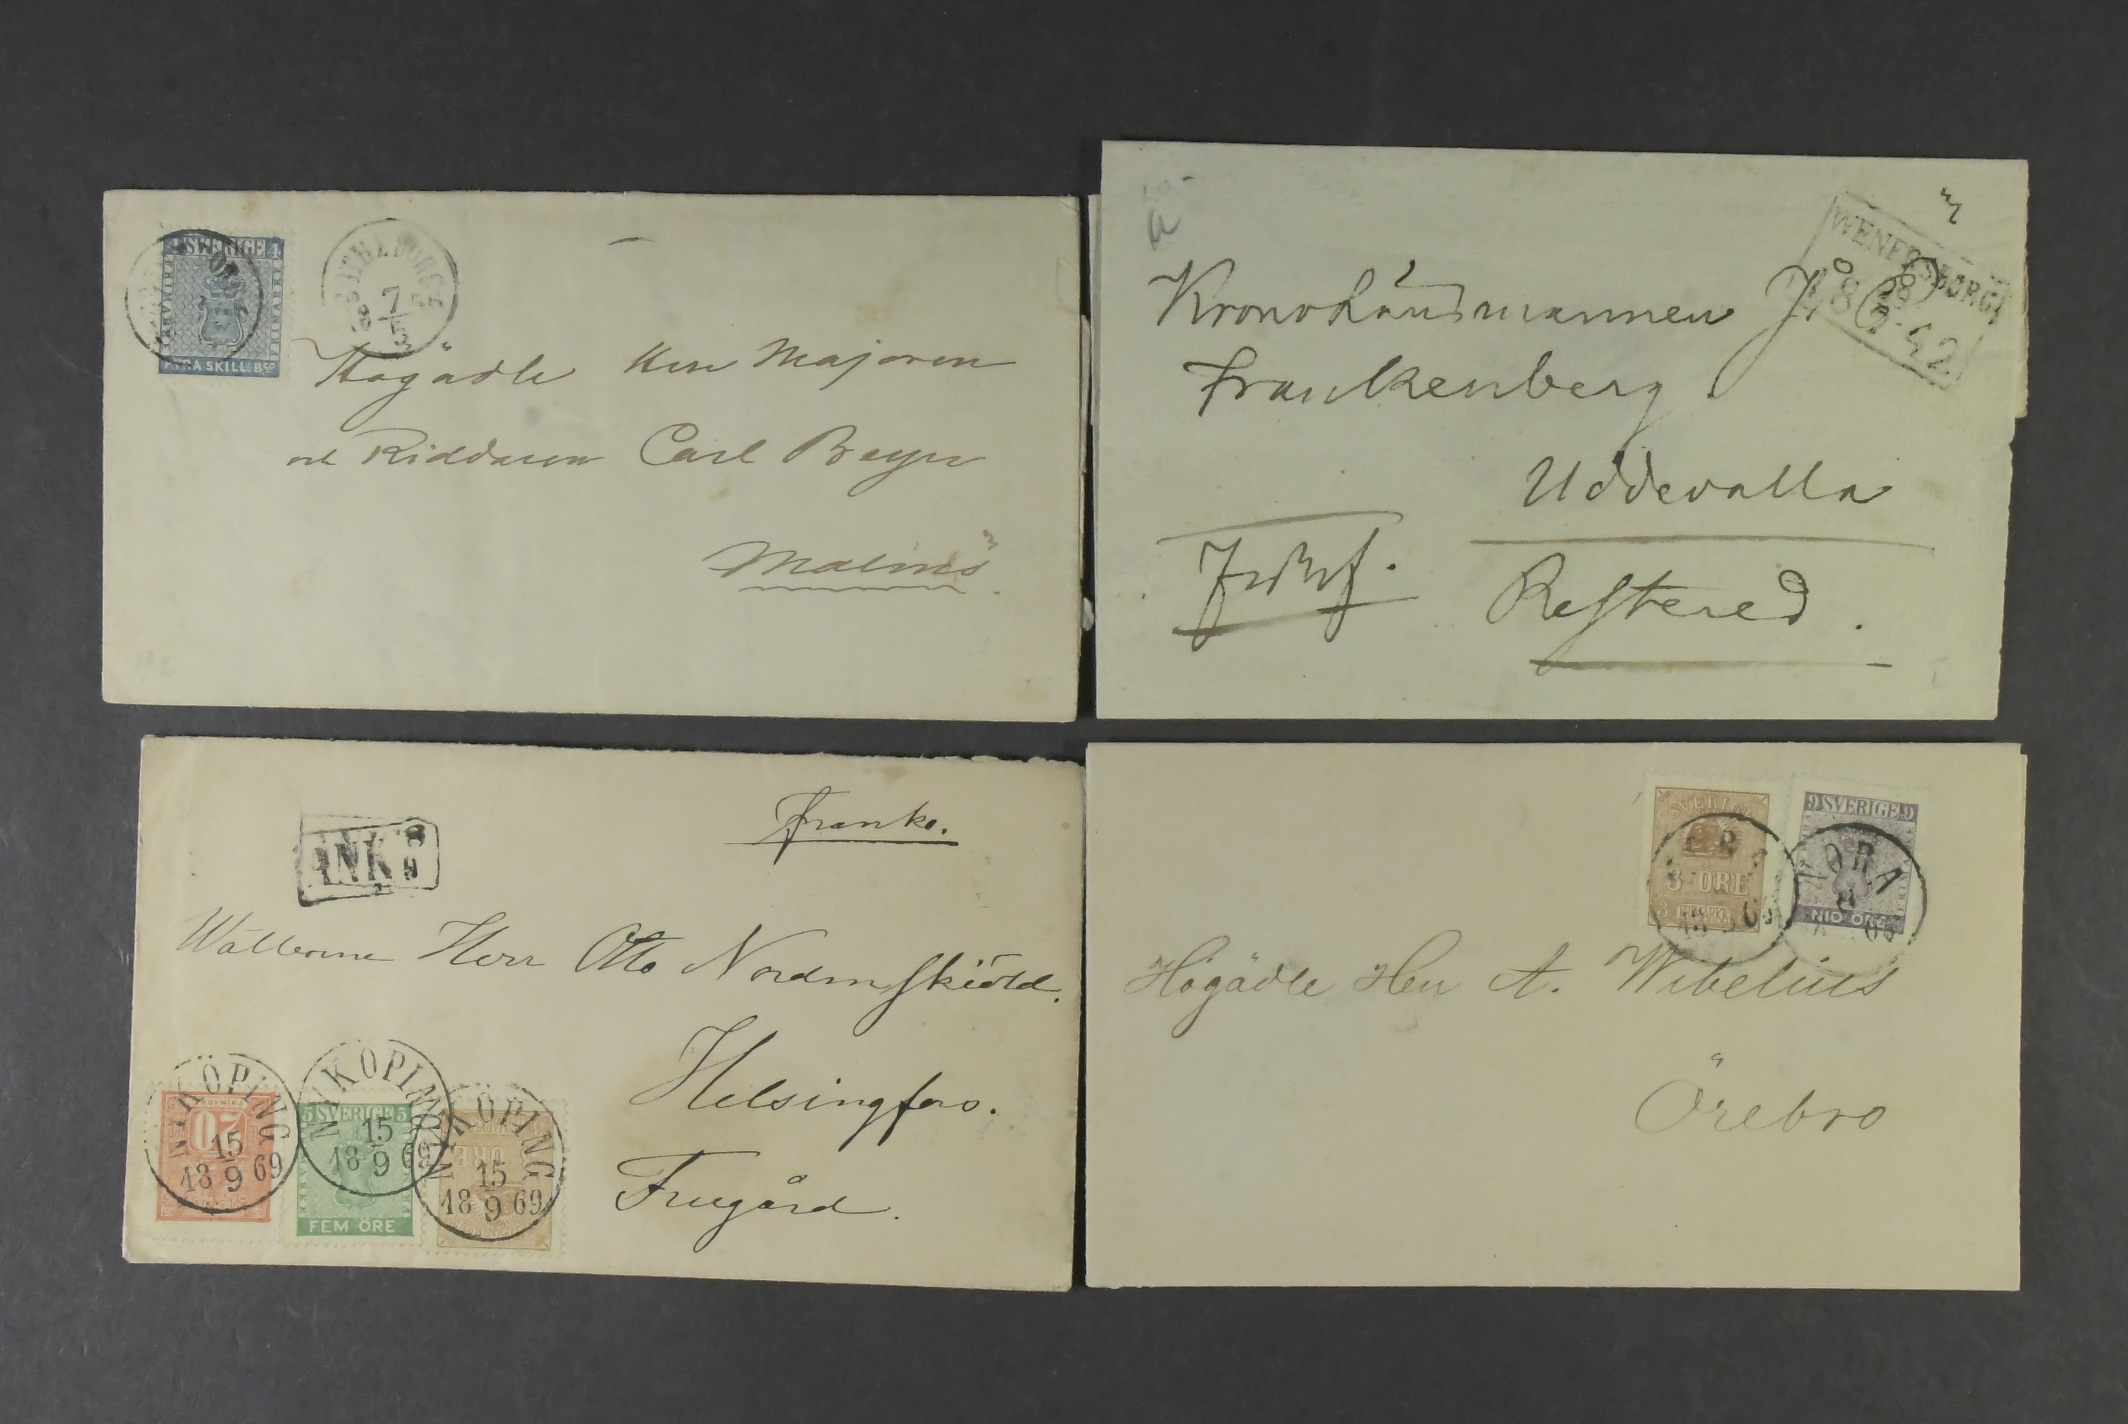 4 SVERIGE 4
FYRA SKILL. Bco
GÖTHEBORG
7
5
Högädle Herr Majoren
och Riddaren Carl Beyer
Malmö
WENERSBORG
29 5 42
Kronolänsmannen J.
Frankenberg
Uddevalla
Restered.
Franko.
ANK
Wälborne Herr Otto Nordenskiöld.
Helsingfors.
Frugård.
NYKÖPING
15
18 9 69
20
NYKÖPING
15
18 9 69
5 SVERIGE 5
FEM ÖRE
NYKÖPING
15
18 9 69
ÖRE
SVERIGE
3 ÖRE
9 SVERIGE 9
NIO ÖRE
NORA
Högädle Herr A. Wibelius
Örebro